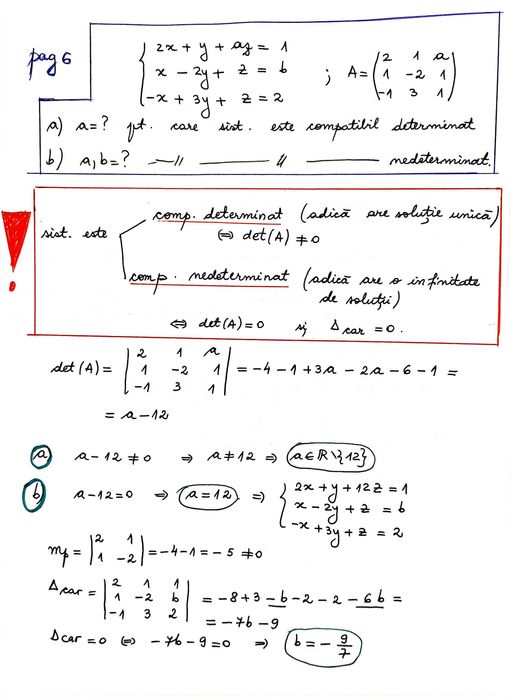 pag 6
2x + y + az = 1
x - 2y + z = b
-x + 3y + z = 2
; A = (2 1 a
1 -2 1
-1 3 1)
a) a = ? pt. care sist. este compatibil determinat
b) a, b = ? —〃— —〃— nedeterminat.
!
sist. este
comp. determinat (adică are soluție unică)
⇔ det(A) ≠ 0
comp. nedeterminat (adică are o infinitate
de soluții)
⇔ det(A) = 0 și Δcar = 0.
det(A) = |2 1 a
1 -2 1
-1 3 1| = -4 - 1 + 3a - 2a - 6 - 1 =
= a - 12
a) a - 12 ≠ 0 ⇒ a ≠ 12 ⇒ a ∈ ℝ \ {12}
b) a - 12 = 0 ⇒ a = 12 ⇒
2x + y + 12z = 1
x - 2y + z = b
-x + 3y + z = 2
mp = |2 1
1 -2| = -4 - 1 = -5 ≠ 0
Δcar = |2 1 1
1 -2 b
-1 3 2| = -8 + 3 - b - 2 - 2 - 6b =
= -7b - 9
Δcar = 0 ⇔ -7b - 9 = 0 ⇒ b = - 9/7